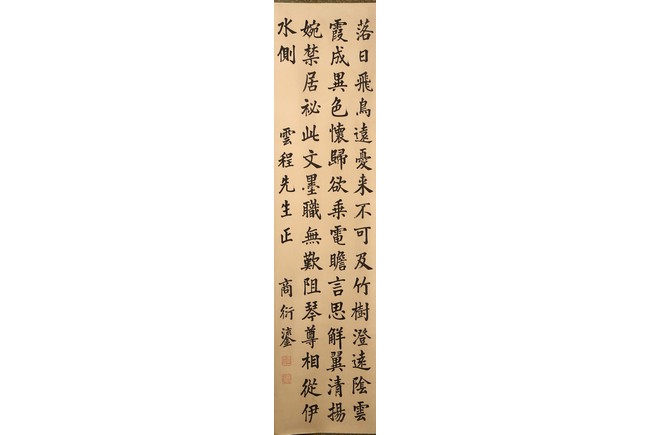 落日飛鳥遠憂来不可及竹樹澄遠陰雲
霞成異色懷歸欲乗電瞻言思解翼清揚
婉禁居祕此文墨職無歎阻琴尊相從伊
水側 雲程先生正 商衍鎏